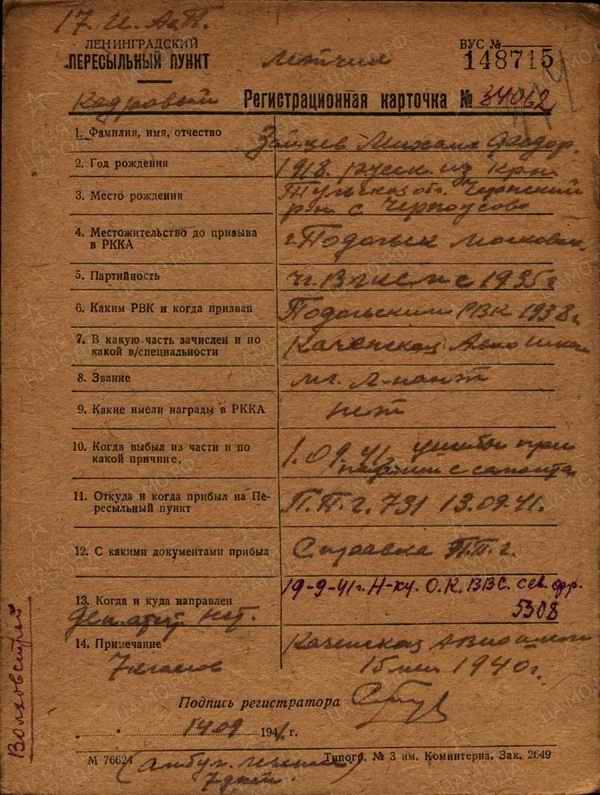 17. И. А. П.
ЛЕНИНГРАДСКИЙ
ПЕРЕСЫЛЬНЫЙ ПУНКТ
Летчик
ВУС №
148715
Кадровый
Регистрационная карточка № 34062
1. Фамилия, имя, отчество
Зайцев Михаил Федор.
2. Год рождения
1918. русск. из кр-н
3. Место рождения
Тульская обл. Чернский
р-н с. Черноусово
4. Местожительство до призыва
в РККА
г. Подольск Московск.
5. Партийность
чл. ВЛКСМ с 1935 г
6. Каким РВК и когда призван
Подольским РВК 1938 г.
7. В какую часть зачислен и по
какой в/специальности
Каченская Авиошкол
8. Звание
мл. л-нант
9. Какие имели награды в РККА
нет
10. Когда выбыл из части и по
какой причине.
1.09.41. ушибы при
падении с самолета
11. Откуда и когда прибыл на Пе-
ресыльный пункт
П.П.г. 731 13.09.41.
12. С какими документами прибыл
Справка П.П.г.
13. Когда и куда направлен
19-9-41г. Н-ку. О.К. ВВС. сев. фр.
5308
нет.
14. Примечание
Каченская авиашкол
7 классов
15 1940 г.
Подпись регистратора
14 09 1941 г.
М 76624
Типогр. № 3 им. Коминтерна. Зак. 2649
(Амбул. лечение)
7 дней.
Волховстрой